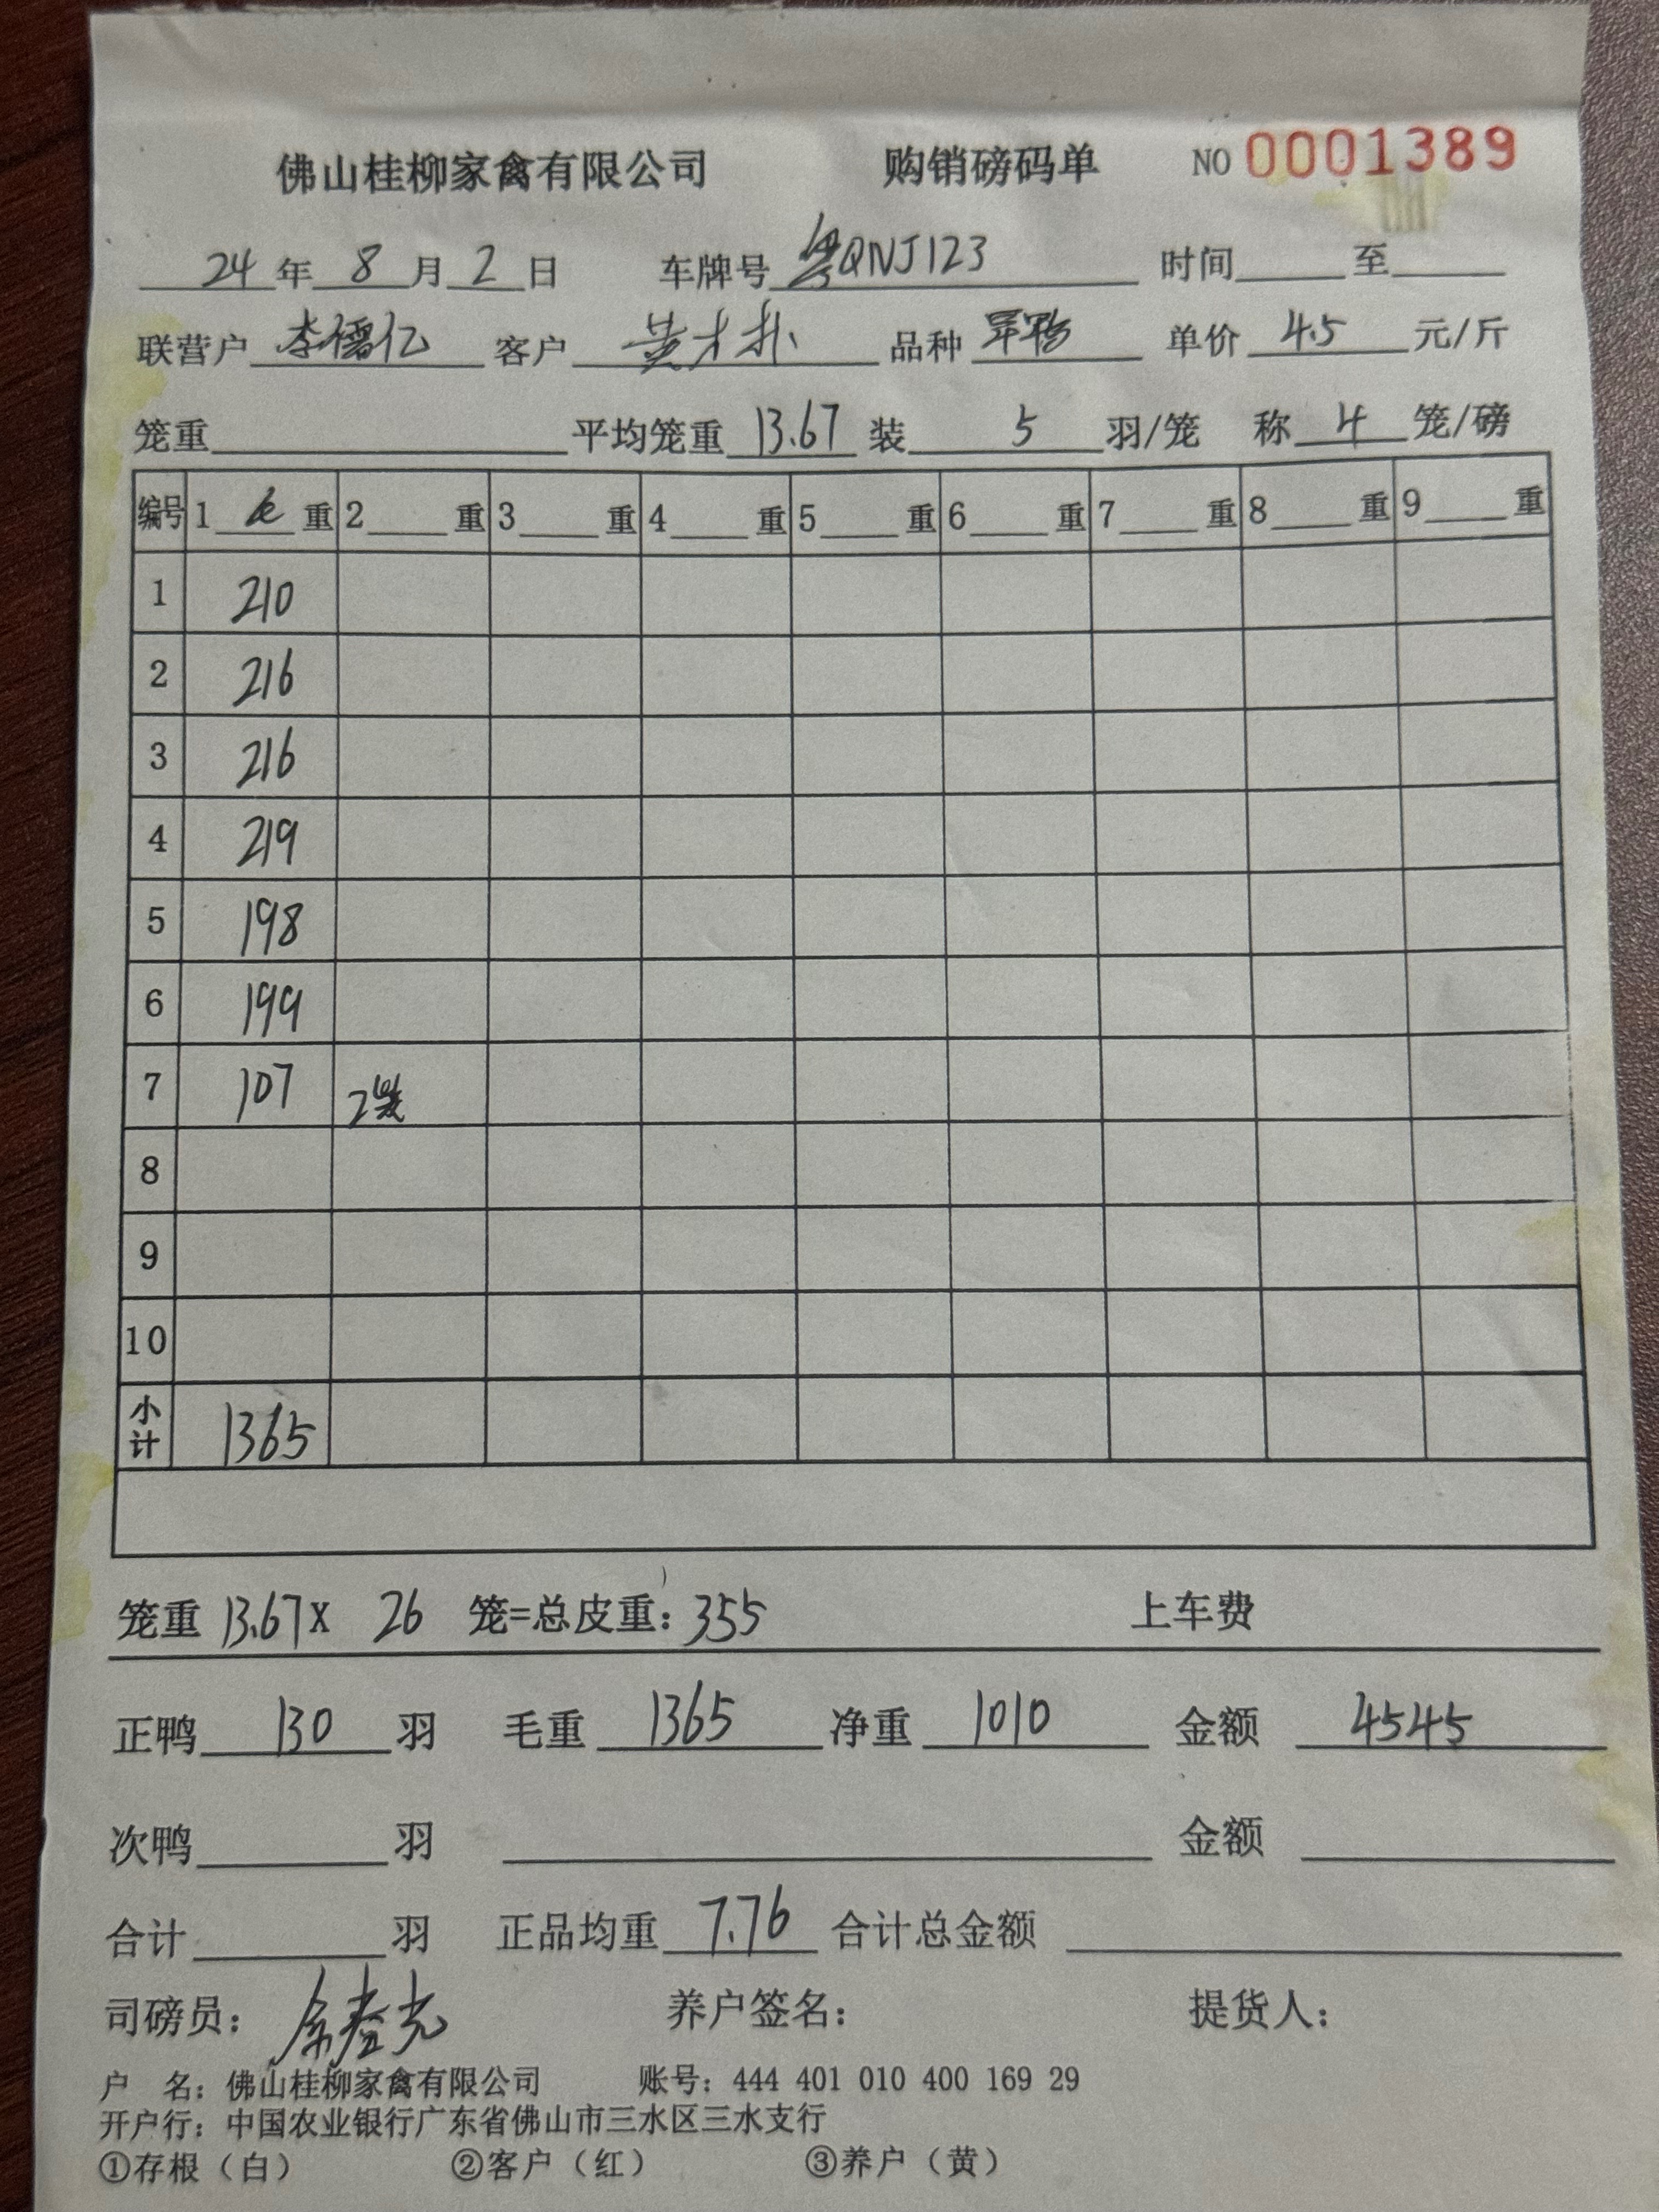 佛山桂柳家禽有限公司 购销磅码单 NO 0001389
24年8月2日 车牌号 粤QNJ123 时间 至
联营户 李儒亿 客户 黄才扑 品种 单价 4.5 元/斤
笼重 平均笼重 13.67 装 5 羽/笼 称 4 笼/磅
编号 1 重 2 重 3 重 4 重 5 重 6 重 7 重 8 重 9 重
1 210
2 216
3 216
4 219
5 198
6 199
7 107 2笼
8
9
10
小计 1365
笼重 13.67 X 26 笼=总皮重: 355 上车费
正鸭 130 羽 毛重 1365 净重 1010 金额 4545
次鸭 羽 金额
合计 羽 正品均重 7.76 合计总金额
司磅员: 养户签名: 提货人:
户 名: 佛山桂柳家禽有限公司 账号: 444 401 010 400 169 29
开户行: 中国农业银行广东省佛山市三水区三水支行
①存根（白） ②客户（红） ③养户（黄）